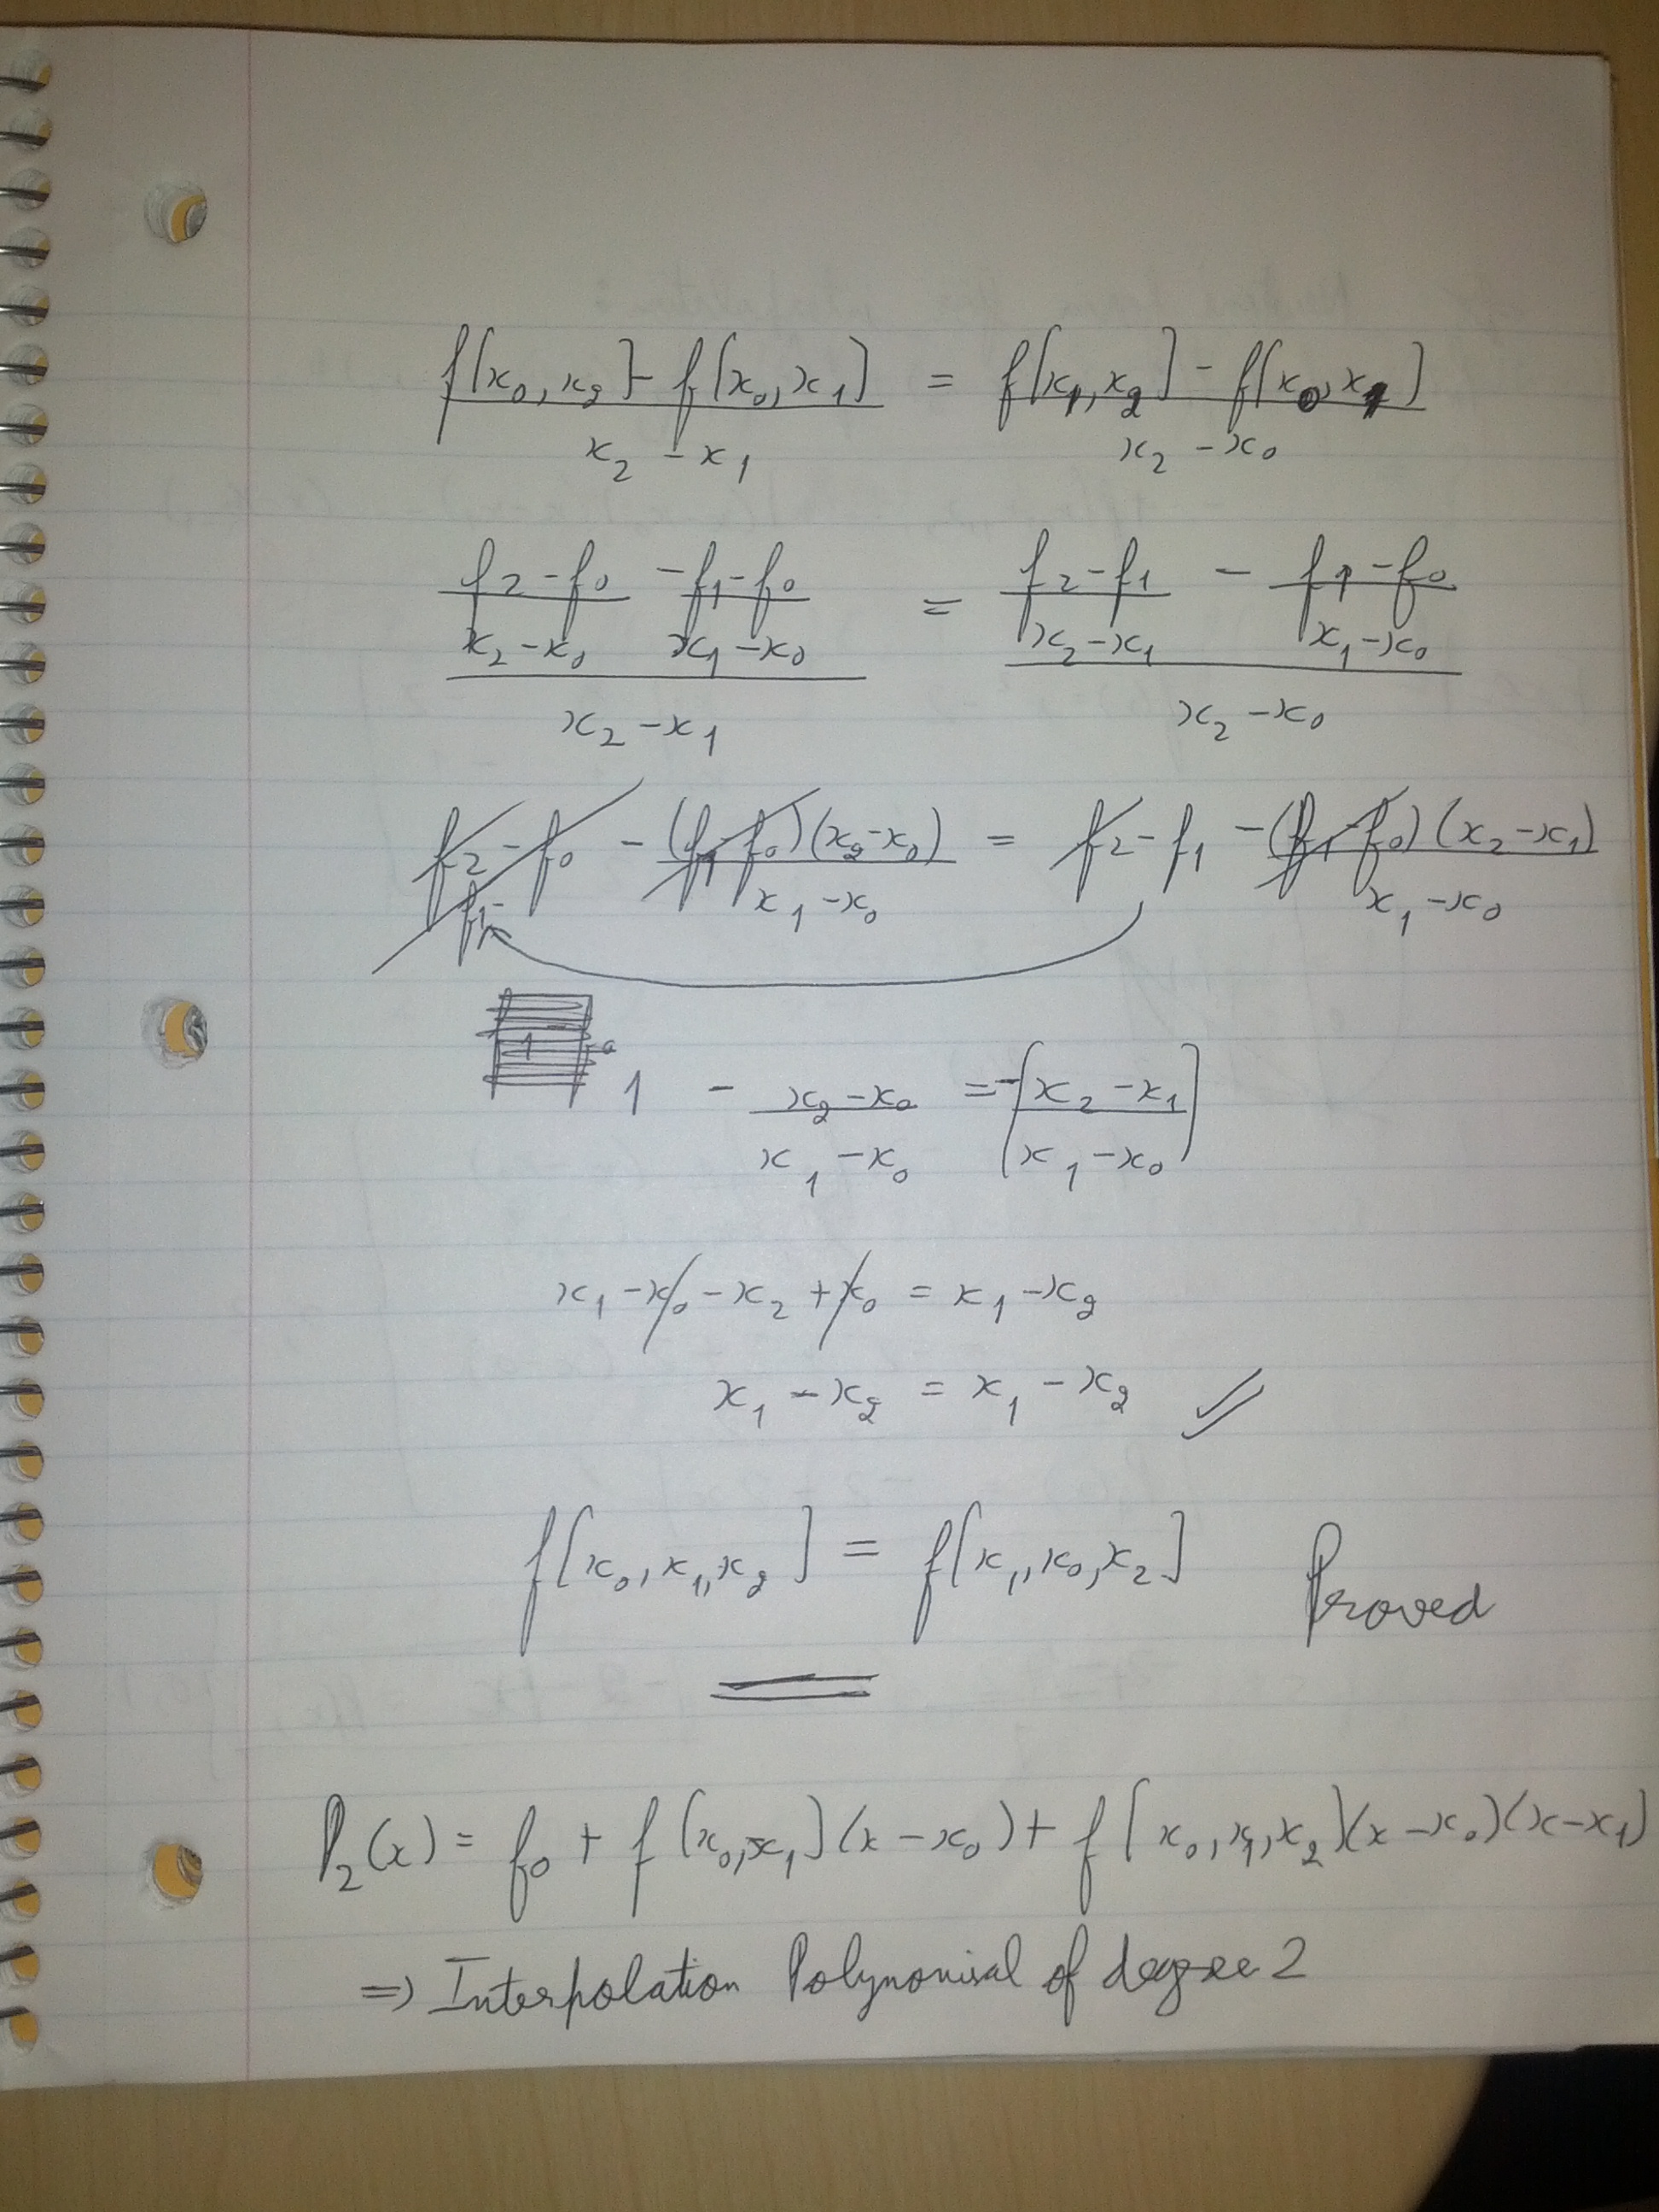 (f[x₀, x₂] - f[x₀, x₁]) / (x₂ - x₁) = (f[x₁, x₂] - f[x₀, x₁]) / (x₂ - x₀)
((f₂ - f₀)/(x₂ - x₀) - (f₁ - f₀)/(x₁ - x₀)) / (x₂ - x₁) = ((f₂ - f₁)/(x₂ - x₁) - (f₁ - f₀)/(x₁ - x₀)) / (x₂ - x₀)
f₂ - f₀ - (f₁ - f₀)(x₂ - x₀) / (x₁ - x₀) = f₂ - f₁ - (f₁ - f₀)(x₂ - x₁) / (x₁ - x₀)
f₁-
1 - (x₂ - x₀)/(x₁ - x₀) = -[(x₂ - x₁)/(x₁ - x₀)]
x₁ - x₀ - x₂ + x₀ = x₁ - x₂
x₁ - x₂ = x₁ - x₂ ✓
f[x₀, x₁, x₂] = f[x₁, x₀, x₂] Proved
P₂(x) = f₀ + f[x₀, x₁](x - x₀) + f[x₀, x₁, x₂](x - x₀)(x - x₁)
⇒ Interpolation Polynomial of degree 2